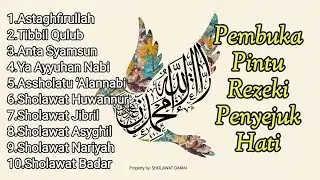 1.Astaghfirullah
2.Tibbil Qulub
3.Anta Syamsun
4.Ya Ayyuhan Nabi
5.Assholatu 'Alannabi
6.Sholawat Huwannur
7.Sholawat Jibril
8.Sholawat Asyghil
9.Sholawat Nariyah
10.Sholawat Badar
لا إله إلا الله محمد رسول الله
Pembuka
Pintu
Rezeki
Penyejuk
Hati
Property by: SHOLAWAT DAMAI